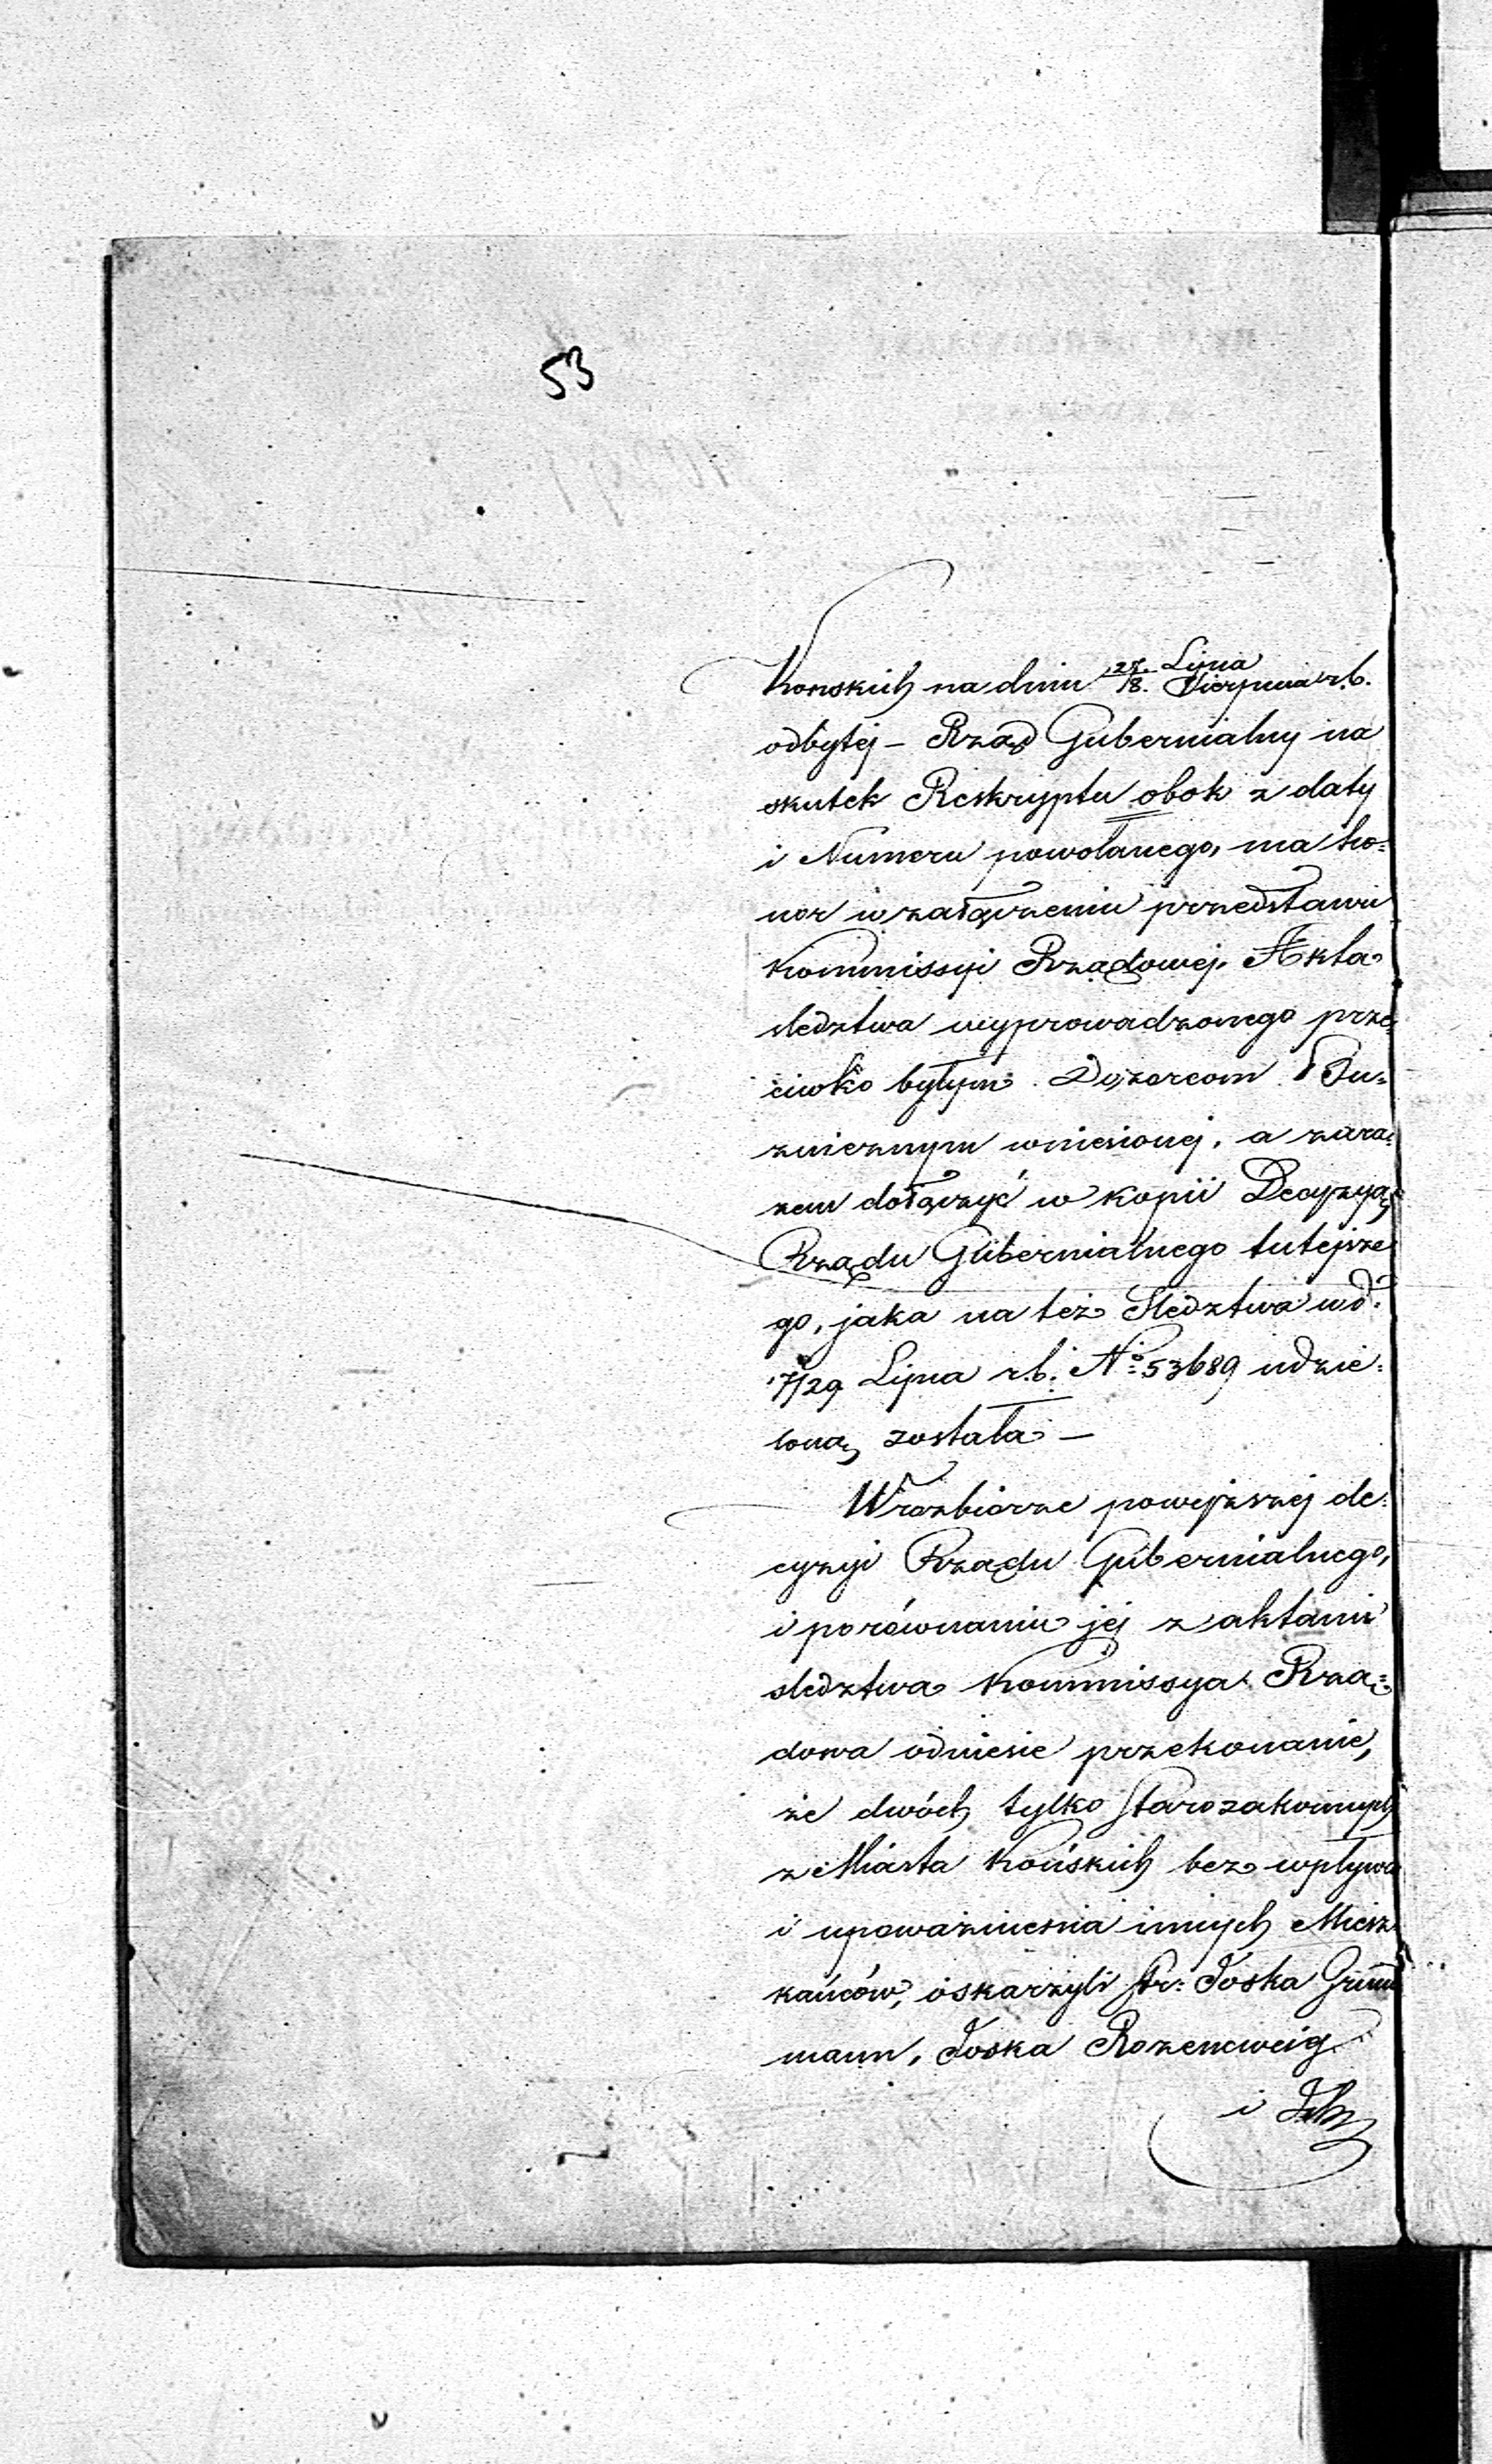 53
Konskich na dniu 27./8. Lipca/Sierpnia r.b.
odbytej – Rząd Gubernialny na
skutek Reskryptu obok z daty
i Numeru powołanego, ma ho=
nor w załączeniu przedstawić
Kommissyi Rządowej. Akta
sledztwa wyprowadzonego prze=
ciwko byłym Dozorcom Bu=
znicznym wniesionej, a zara=
zem dołączyć w kopii Decyzyą
Rządu Gubernialnego tutejsze
go, jaka na też Sledztwa w d:
17/29 Lipca r.b. No 53689 udzie=
loną została –
W rozbiorze powyższej de=
cyzyi Rządu Gubernialnego,
i porównaniu jej z aktami
sledztwa Kommissya Rzą=
dowa odniesie przekonanie,
że dwóch tylko Starozakonnych
z Miasta Końskich bez wpływu
i upoważnienia innych Miesz
kańców, oskarżyli Str: Joska Grun
mann, Joska Rozencweig
i